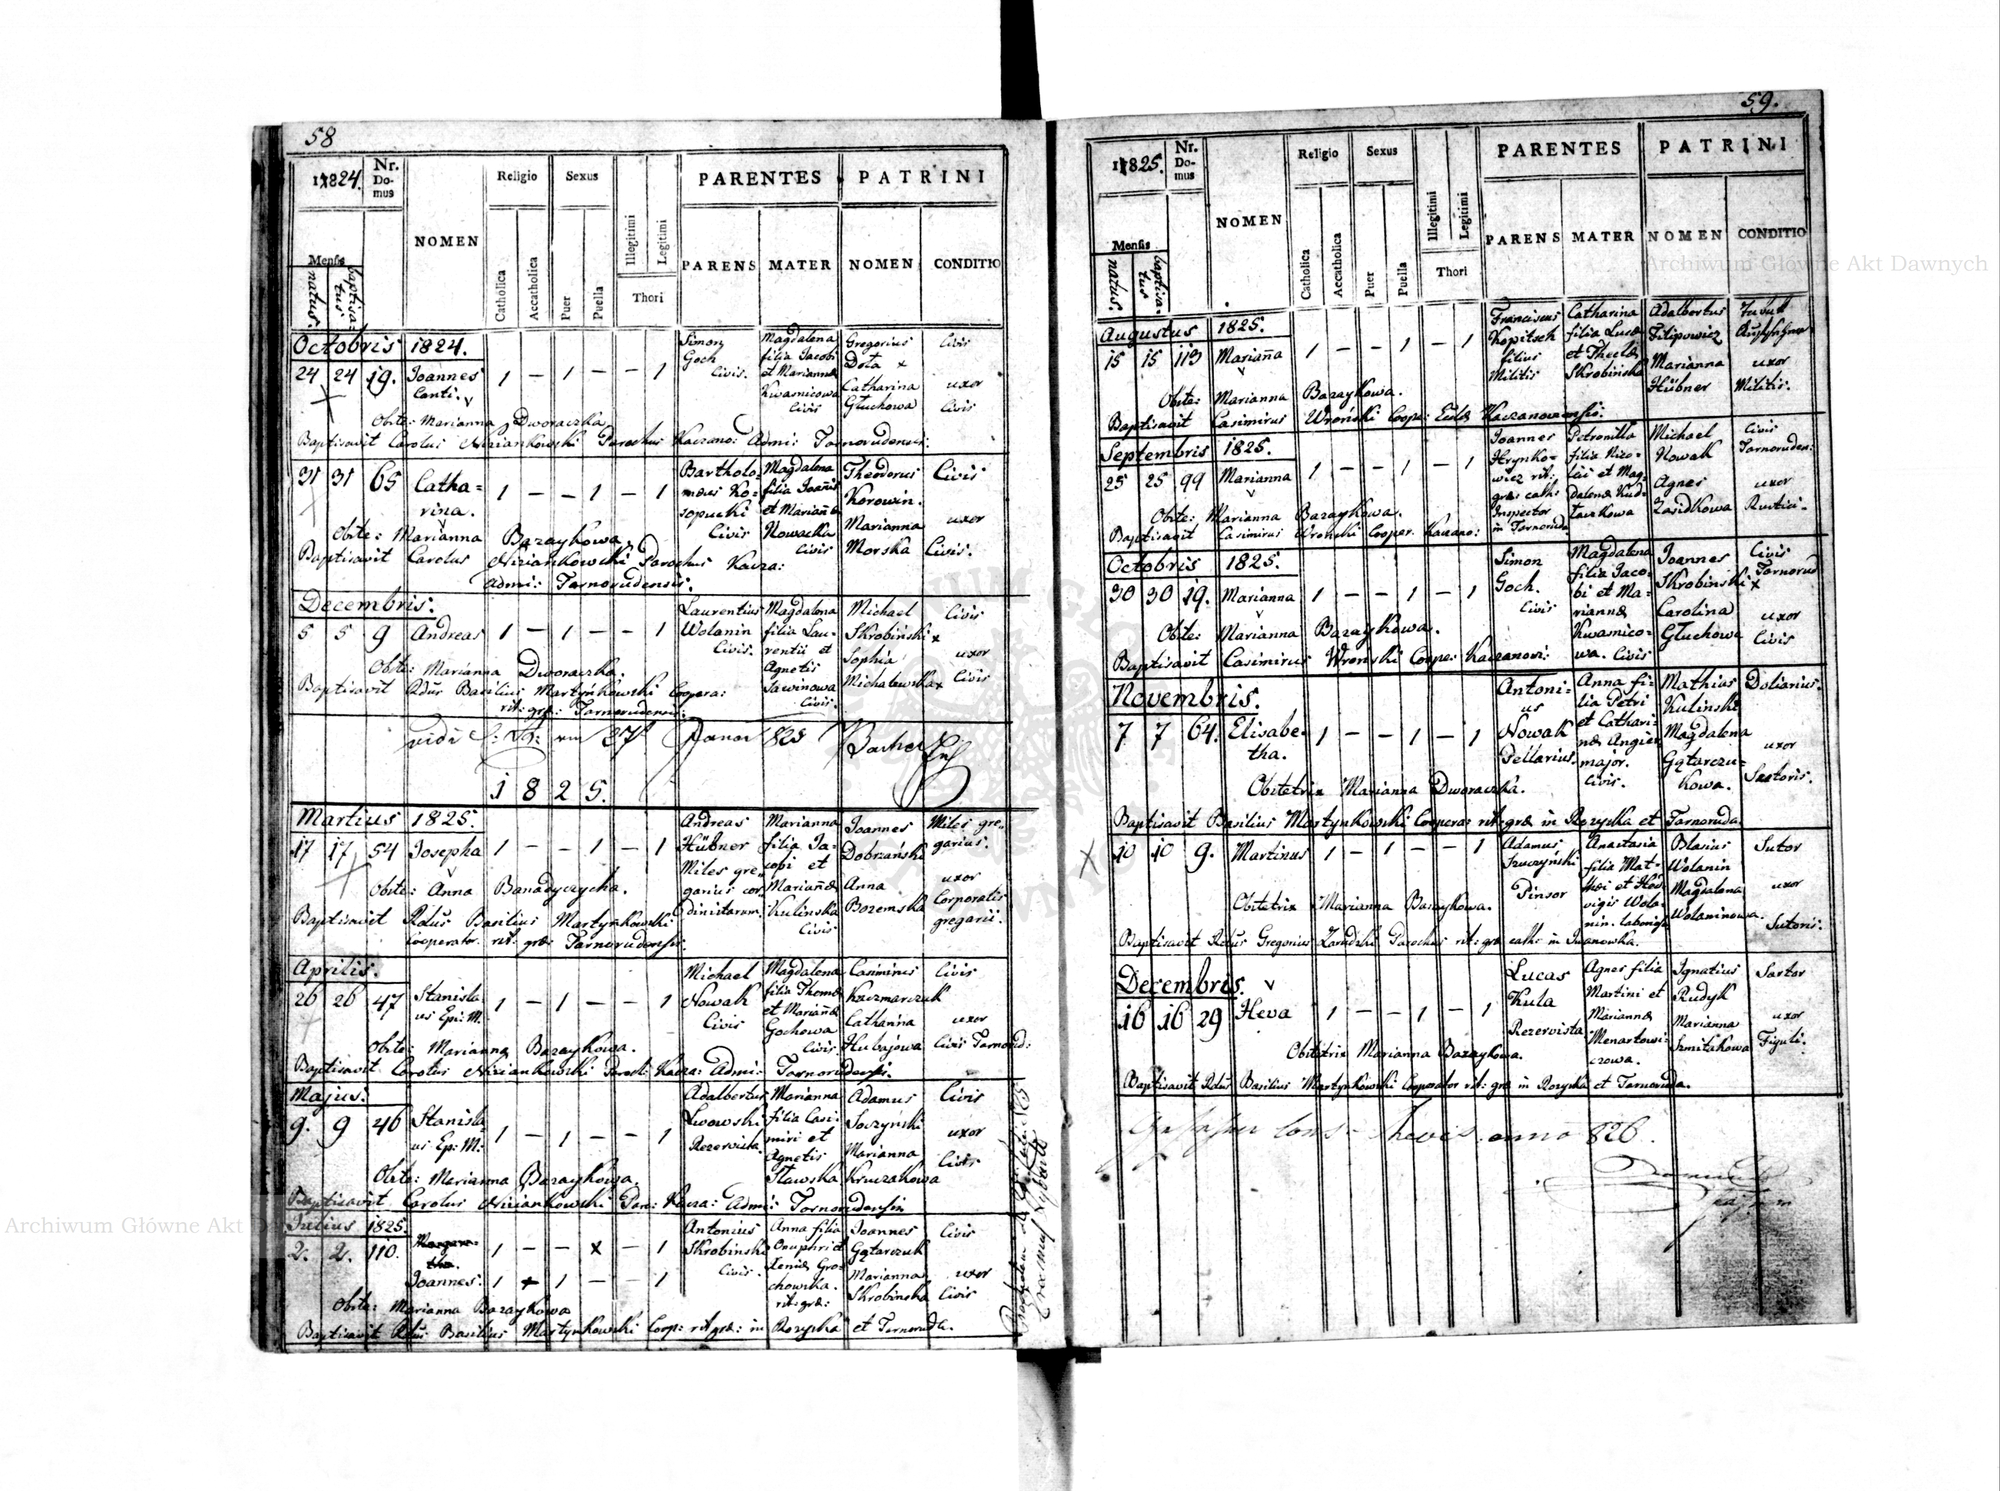 58
1824.
Nr. Domus
NOMEN
Religio
Sexus
Illegitimi
Legitimi
Thori
PARENTES
PATRINI
Mensis
natus.
baptisatus
Catholica
Accatholica
Puer
Puella
PARENS
MATER
NOMEN
CONDITIO
Octobris 1824.
24 24 19. Joannes Canti. 1 — 1 — — 1
Simon Goch Civis.
Magdalena filia Jacobi et Mariannæ Kwasnicowa Civis
Gregorius Dota x Civis
Catharina Głuchowa uxor Civis
Obste: Marianna Dworaczka.
Baptisavit Carolus Niziankowski Parochus Kaczano: Admi: Tarnorudensis.
31 31 65 Catharina. 1 — — 1 — 1
Bartholomæus Kosopucki Civis
Magdalena filia Joannis et Mariannæ Nowacka Civis
Theodorus Korowin. Civis
Marianna Morska uxor Civis.
Obste: Marianna Bazaykowa.
Baptisavit Carolus Niziankowski Parochus Kacza:
Admi: Tarnorudensis.
Decembris.
5 5 9 Andreas 1 — 1 — — 1
Laurentius Wolanin Civis.
Magdalena filia Laurentii et Agnetis Sawinowa Civis.
Michael Skrobiński x Civis
Sophia Michalewska x uxor Civis
Obste: Marianna Dworaczka.
Baptisavit Adur Basilius Martynkowski Coopera:
rit: græ: Tarnorudensis.
vidi 27 Januar 825
1825.
Martius 1825.
17 17 54 Josepha 1 — — 1 — 1
Andreas Hübner Miles gregarius cordinistarum
Marianna filia Jacopi et Mariannæ Kulinska Civis
Joannes Dobrzański Miles gregarius.
Anna Bozemska uxor Corporalis gregarii.
Obste: Anna Banadyczycha.
Baptisavit Rdus Basilius Martynkowski
cooperator. rit: græ: Tarnorudensis.
Aprilis.
26 26 47 Stanislaus Epi: M. 1 — 1 — — 1
Michael Nowak Civis
Magdalena filia Thomæ et Mariannæ Gochowa Civis.
Casimirus Kaczmarczuk Civis
Catharina Hubajowa uxor Civis Tarnorud:
Obste: Marianna Bazaykowa.
Baptisavit Carolus Niziankowski Paroch: Kacza: Admi: Tarnorudensis.
Majus.
9. 9 46 Stanislaus Ep: M: 1 — 1 — — 1
Adalbertus Lwowski Rezervista.
Marianna filia Casimiri et Agnetis Stawska
Adamus Soczyński Civis
Marianna Kruczakowa uxor Civis
Obste: Marianna Bazaykowa.
Baptisavit Carolus Niziankowski Par: Kacza: Admi: Tarnorudensis
Julius 1825.
2. 2. 110. 1 — — x — 1
Joannes. 1 + 1 — — 1
Antonius Skrobinski Civis.
Anna filia Onuphri et Xeniæ Grochowska. rit: græ:
Joannes Gątarczuk Civis
Marianna Skrobinska uxor Civis
Obste: Marianna Bazaykowa
Baptisavit Rdus Basilius Martynkowski Coop: rit: græ: in Rozyska et Tarnoruda.
59.
1825.
Nr. Domus
NOMEN
Religio
Sexus
Illegitimi
Legitimi
Thori
PARENTES
PATRINI
Mensis
natus.
baptisatus
Catholica
Accatholica
Puer
Puella
PARENS
MATER
NOMEN
CONDITIO
Augustus 1825.
15 15 113 Mariana 1 — — 1 — 1
Franciscus Kopitsch filius Militis
Catharina filia Lucæ et Theclæ Skrobińska
Adalbertus Filipowicz
Marianna Hübner uxor Militis.
Obste: Marianna Bazaykowa.
Baptisavit Casimirus Wroński Coope: Eccle Kaczanowensis.
Septembris 1825.
25 25 99 Marianna 1 — — 1 — 1
Joannes Hrynkowicz rit: græ: cath: Inspector in Tarnoruda
Petronilla filia Nicolai et Magdalenæ Kudtaczkowa
Michael Nowak Civis Tarnoruden:
Agnes Zasidkowa uxor Rustici.
Obste: Marianna Bazaykowa.
Baptisavit Casimirus Wroński Cooper. Kaczano:
Octobris 1825.
30 30 19. Marianna 1 — — 1 — 1
Simon Goch. Civis
Magdalena filia Jacobi et Mariannæ Kwasnicowa. Civis
Joannes Skrobinski x Civis Tarnorud
Carolina Głuchowa uxor Civis
Obste: Marianna Bazaykowa.
Baptisavit Casimirus Wronski Coope: Kaczanowi:
Novembris.
7 7 64. Elisabetha. 1 — — 1 — 1
Antonius Nowak Pellarius.
Anna filia Petri et Catharinæ Angiermajor. Civis.
Mathias Kulinski Doliarius.
Magdalena Gątarczukowa. uxor Sartoris.
Obstetrix Marianna Dworaczka.
Baptisavit Basilius Martynkowski Coopera: rit: græ in Rozyska et Tarnoruda.
10 10 9. Martinus 1 — 1 — — 1
Adamus Szuczyński Pinsor
Anastasia filia Mathæi et Hedvigis Wolanin. laboriosa
Blasius Wolanin Sutor
Magdalena Wolaninowa. uxor Sutoris.
Obstetrix Marianna Bazaykowa.
Baptisavit Rdus Gregorius Zarudzki Parochus rit: græ cath: in Iwanowka.
Decembris.
16 16 29 Heva 1 — — 1 — 1
Lucas Kula Rezervista
Agnes filia Martini et Mariannæ Menartowiczowa.
Ignatius Rudyk Sartor
Marianna Szmitakowa uxor Figuli.
Obstetrix Marianna Bazaykowa.
Baptisavit Rdus Basilius Martynkowski Cooperator rit: græ in Rozyska et Tarnoruda.
anno 826.
Archiwum Główne Akt Dawnych
Archiwum Główne Akt Dawnych